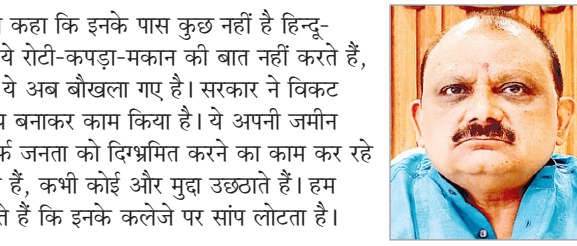 कहा कि इनके पास कुछ नहीं है हिन्दू-
ये रोटी-कपड़ा-मकान की बात नहीं करते हैं,
ये अब बौखला गए है। सरकार ने विकट
बनाकर काम किया है। ये अपनी जमीन
जनता को दिग्भ्रमित करने का काम कर रहे
हैं, कभी कोई और मुद्दा उछठाते हैं। हम
हैं कि इनके कलेजे पर सांप लोटता है।